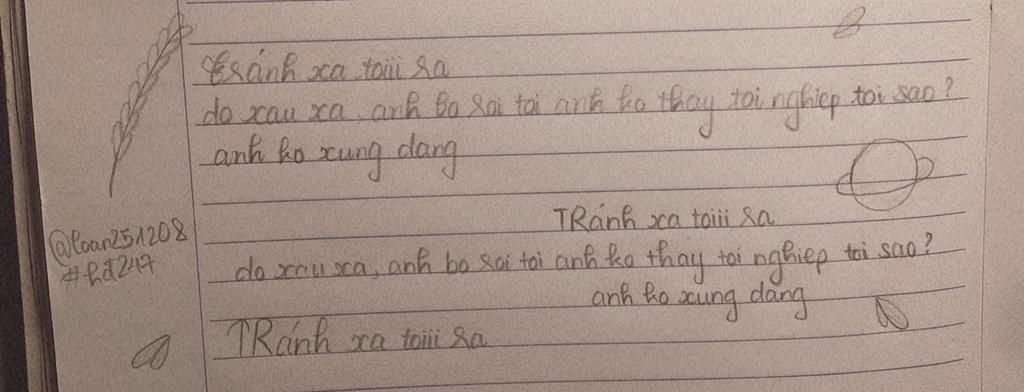 tránh xa toiii ra
do xau xa, anh bo roi toi anh ko thay toi nghiep toi sao?
anh ko xung dang
TRánh xa toiii ra
@loan251208
#hd247
do xau xa, anh bo roi toi anh ko thay toi nghiep toi sao?
anh ko xung dang
TRánh xa toiii ra